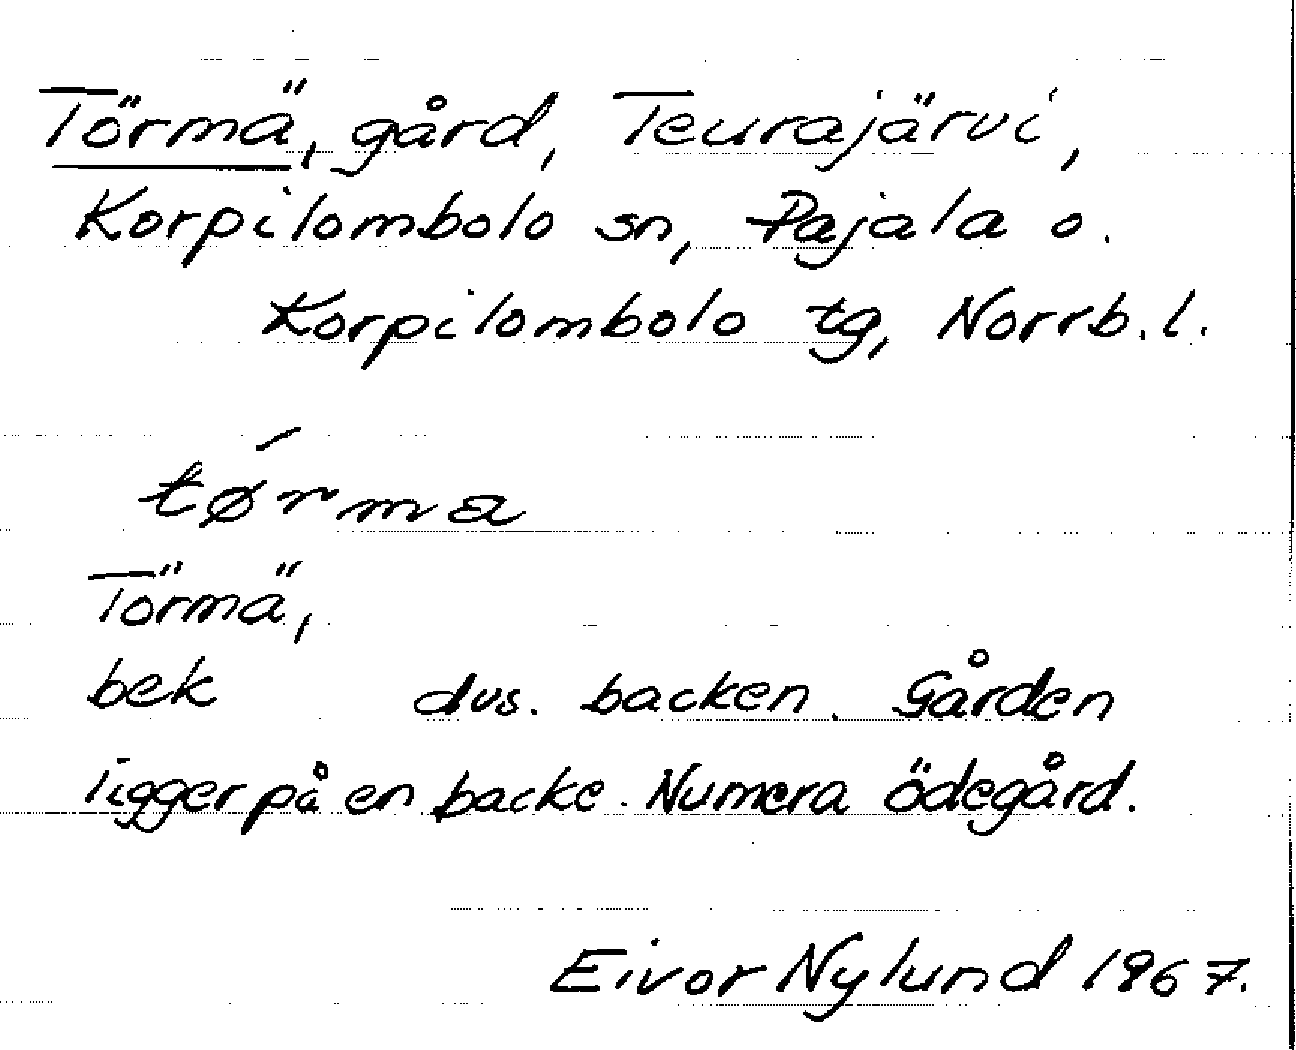 Törmä, gård, Teurajärvi,
Korpilombolo sn, Pajala o.
Korpilombolo tg, Norrb. l.
tǿrma
Törmä,
bek dvs. backen. Gården
ligger på en backe. Numera ödegård.
Eivor Nylund 1967.